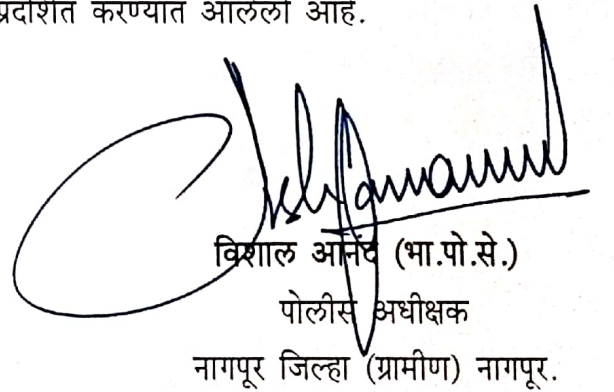 प्रदर्शित करण्यात आलेली आहे.
विशाल आनंद (भा.पो.से.)
पोलीस अधीक्षक
नागपूर जिल्हा (ग्रामीण) नागपूर.